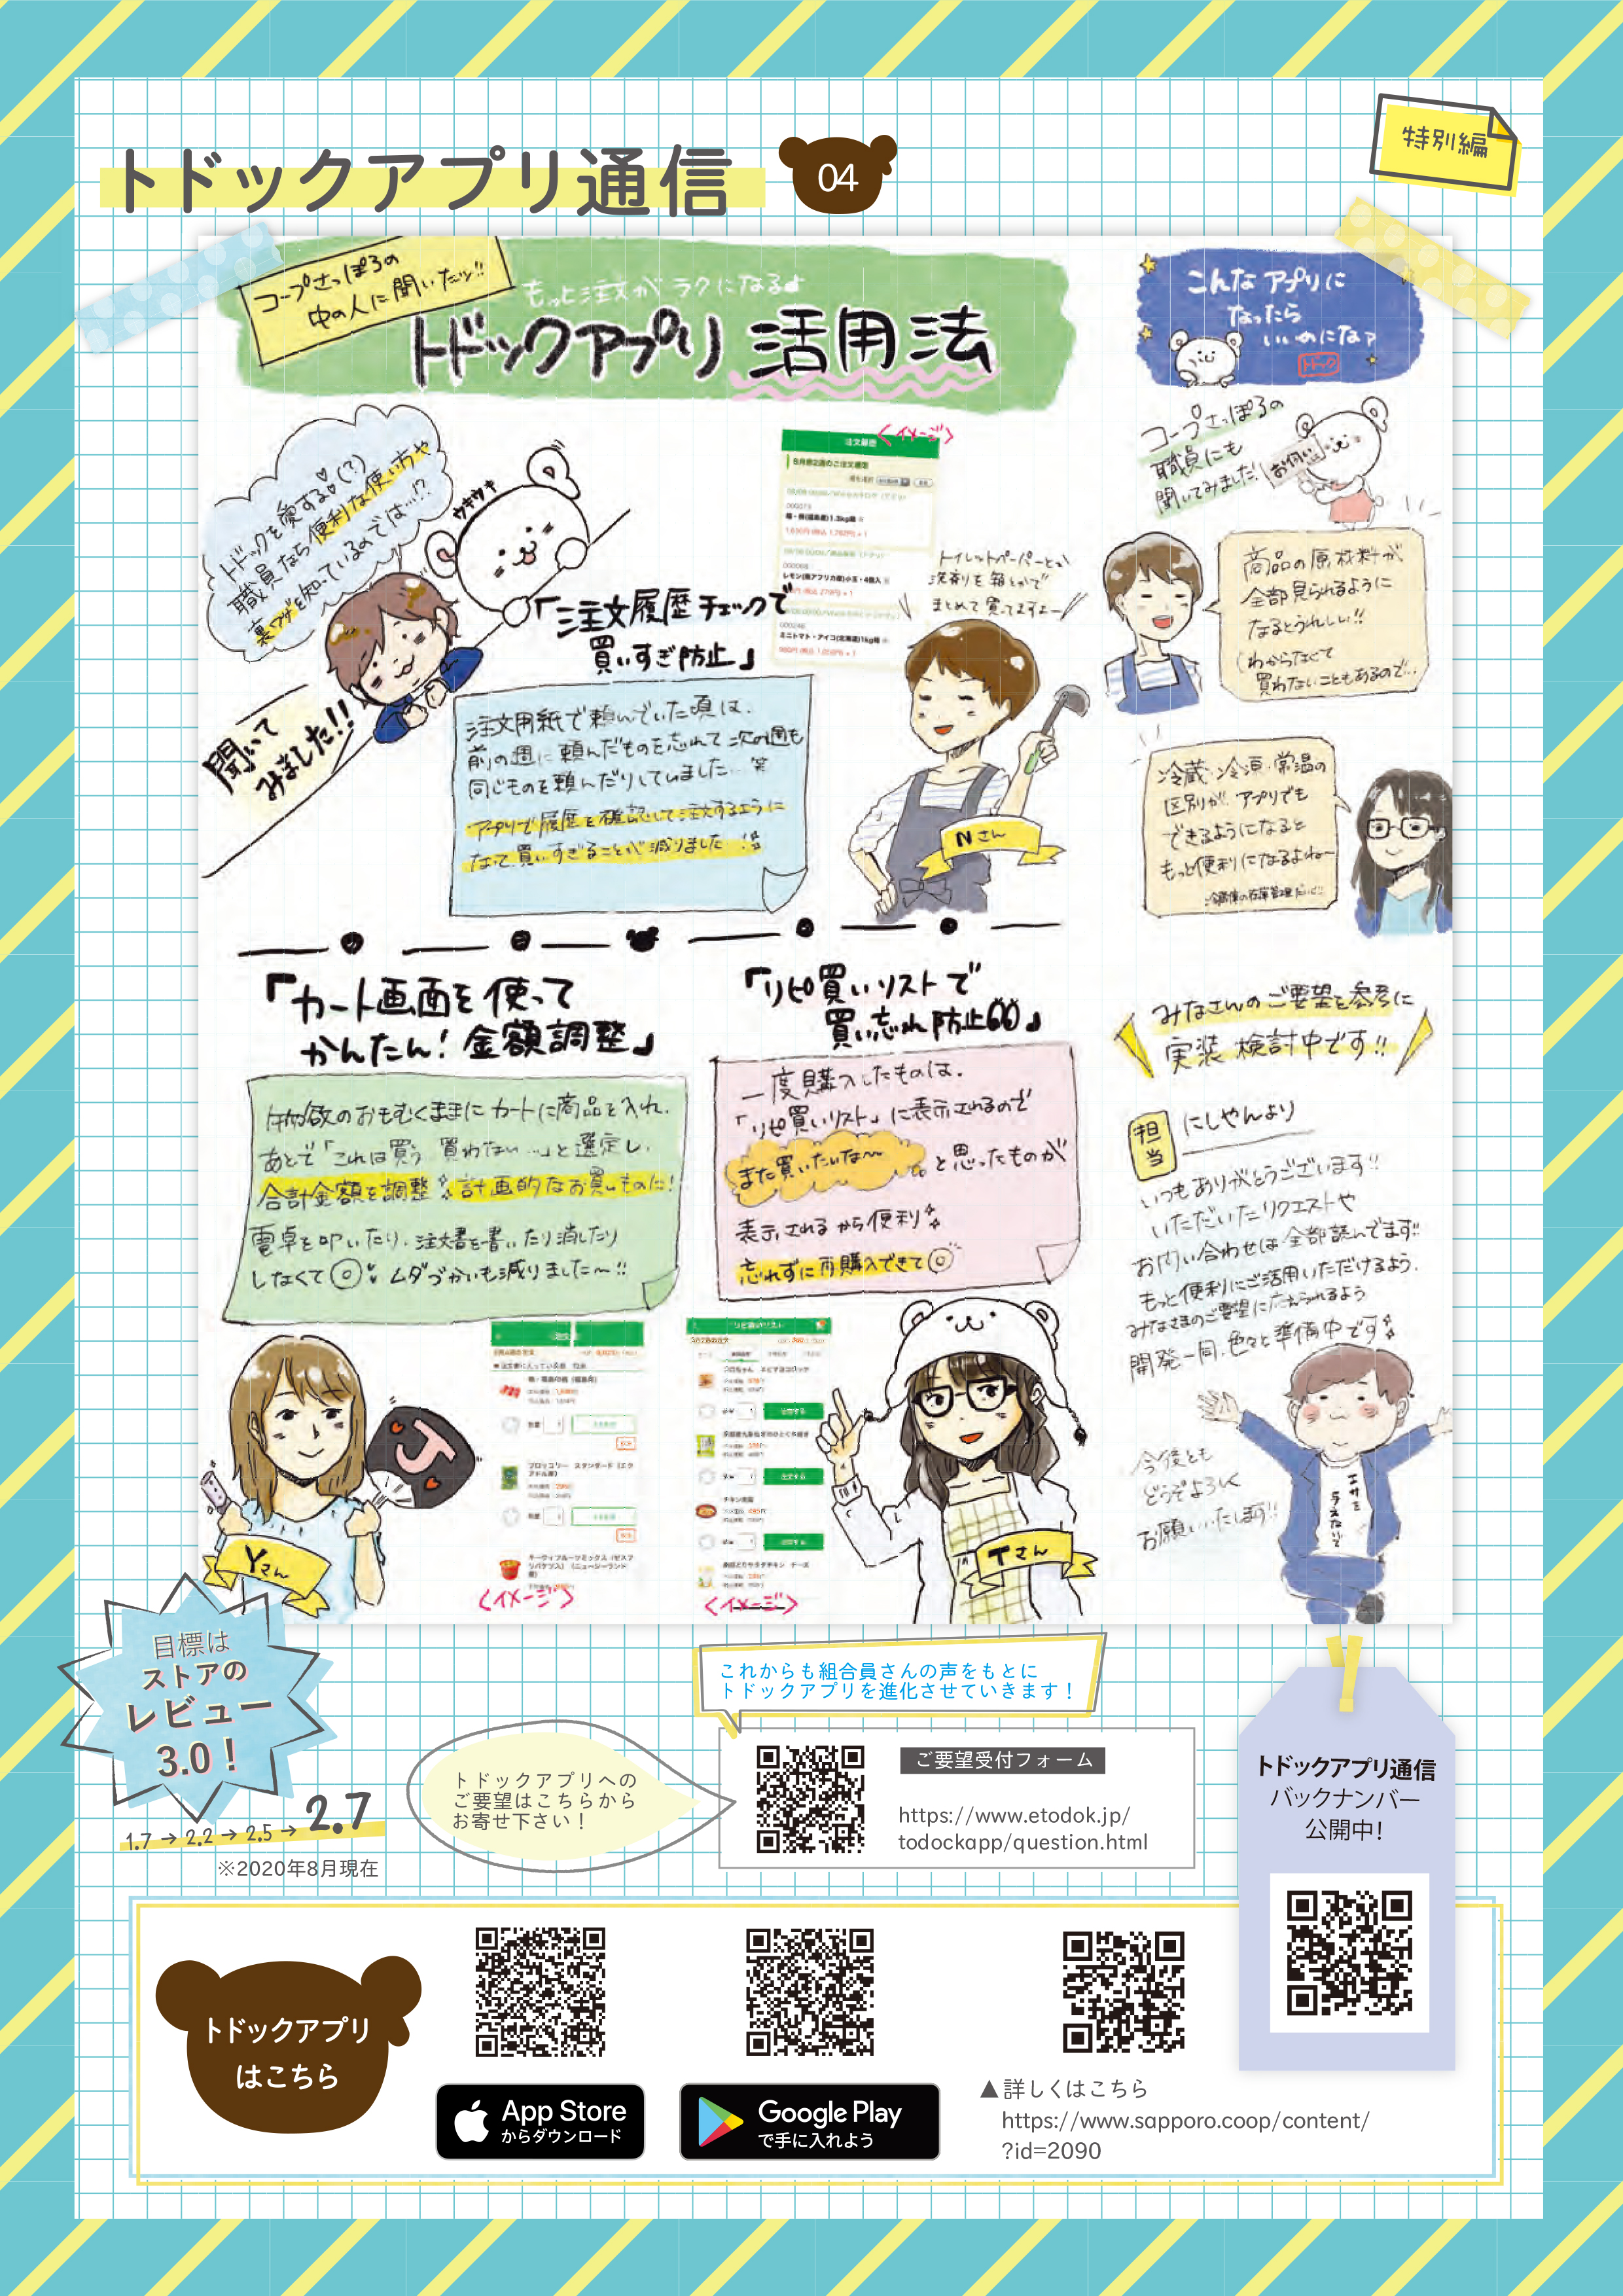 トドックアプリ通信
04
特別編
コープさっぽろの
中の人に聞いたッ!!
もっと注文がラクになる♪
トドックアプリ 活用法
こんなアプリに
なったら
いいのになァ
トドック
トドックを愛する(?)
職員なら便利な使い方や
裏ワザを知っているのでは…!?
ウキウキ
聞いて
みました!!
「注文履歴チェックで
買いすぎ防止」
<イメージ>
注文履歴
8月第2週のご注文履歴
000073
000068
レモン(南アフリカ産)小玉・4個入
000246
ミニトマト・アイコ(北海道)1kg箱
トイレットペーパーとか
洗剤を箱とかで
まとめて買ってますよー
注文用紙で頼んでいた頃は、
前の週に頼んだものを忘れて次の週も
同じものを頼んだりしていました… 笑
アプリで履歴を確認して注文するように
なって、買いすぎることが減りました!!
Nさん
コープさっぽろの
職員にも
聞いてみました!
お伺い
商品の原材料が
全部見られるように
なるとうれしい!!
(わからなくて
買わないこともあるので…
冷蔵・冷凍・常温の
区別が、アプリでも
できるようになると
もっと便利になるよね〜
冷蔵庫の在庫管理だいじ!!
「カート画面を使って
かんたん!金額調整」
物欲のおもむくままにカートに商品を入れ、
あとで「これは買う 買わない…」と選定し、
合計金額を調整 計画的なお買いものに!
電卓を叩いたり、注文書を書いたり消したり
しなくて◎ ムダづかいも減りました〜!!
「リピ買いリストで
買い忘れ防止」
一度購入したものは、
「リピ買いリスト」に表示されるので
また買いたいな〜 と思ったものが
表示されるから便利
忘れずに再購入できて◎
みなさんのご要望を参考に
実装 検討中です!!
担当 にしやんより
いつもありがとうございます!!
いただいたリクエストや
お問い合わせは全部読んでます!!
もっと便利にご活用いただけるよう、
みなさまのご要望に応えられるよう
開発一同、色々と準備中です
今後とも
どうぞよろしく
お願いいたします!!
エサを
与えないで
J
Yさん
<イメージ>
リピ買いリスト
チキン南蛮
<イメージ>
Tさん
目標は
ストアの
レビュー
3.0!
1.7 → 2.2 → 2.5 → 2.7
※2020年8月現在
トドックアプリへの
ご要望はこちらから
お寄せ下さい!
これからも組合員さんの声をもとに
トドックアプリを進化させていきます!
ご要望受付フォーム
https://www.etodok.jp/
todockapp/question.html
トドックアプリ通信
バックナンバー
公開中!
トドックアプリ
はこちら
App Store
からダウンロード
Google Play
で手に入れよう
▲詳しくはこちら
https://www.sapporo.coop/content/
?id=2090